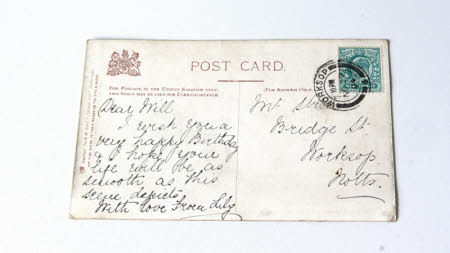 POST CARD.
FOR POSTAGE IN THE UNITED KINGDOM ONLY,
THIS SPACE MAY BE USED FOR CORRESPONDENCE.
(FOR ADDRESS ONLY.)
WORKSOP
Dear Will
I wish you a
very happy Birthday
& hope your
life will be as
smooth as this
scene depicts.
With love from Lily
Mr
Bridge St.
Worksop.
Notts.